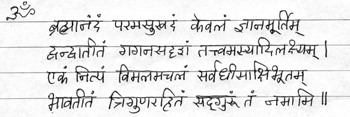 ॐ
ब्रह्मानंदं परमसुखदं केवलं ज्ञानमूर्तिम्
द्वन्द्वातीतं गगनसदृशं तत्त्वमस्यादिलक्ष्यम् ।
एकं नित्यं विमलमचलं सर्वधीसाक्षिभूतम्
भावतीतं त्रिगुणरहितं सद्गुरुं तं नमामि ॥